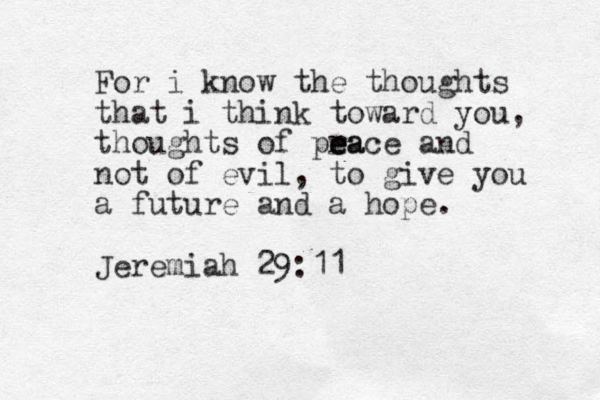 For i know the thoughts
that i think toward you,
thoughts of peace and
not of evil, to give you
a future and a hope.
Jeremiah 29:11